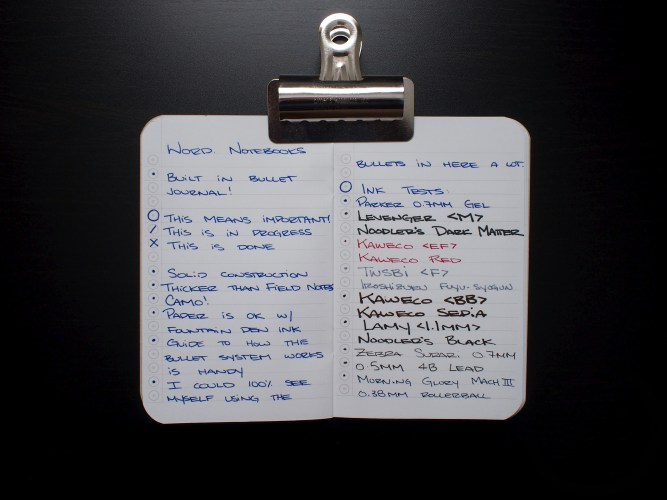 Word Notebooks
• Built in bullet
journal!
○ This means important!
/ This is in progress
× This is done
• Solid construction
• Thicker than Field Notes
• Camo!
• Paper is ok w/
fountain pen ink
• Guide to how the
bullet system works
is handy
• I could 100% see
myself using the
bullets in here a lot.
○ Ink Tests:
• Parker 0.7mm Gel
• Levenger <M>
Noodler's Dark Matter
• Kaweco <EF>
Kaweco Red
• TWSBI <F>
Iroshizuku Fuyu-syogun
• Kaweco <BB>
Kaweco Sepia
• Lamy <1.1mm>
Noodler's Black
• Zebra 0.7mm
• 0.5mm 4B Lead
• Morning Glory Mach III
0.38mm rollerball